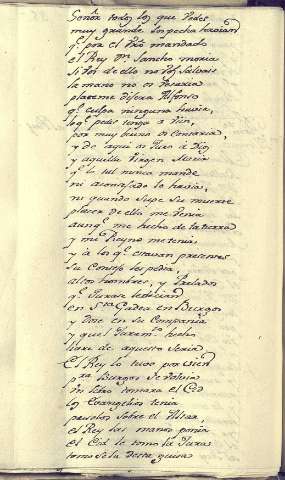 Señor todos los que vedes
muy grande sospecha havian
q.e por el vro mandado
el Rey Dn Sancho moria
si vos de ello no vos salvais
la mano no os vesaria
plaseme dixera Alfonso
q.e culpa ninguna havia,
lo q.e pedis tengo a vien,
por muy bueno os contaria,
y de aqui os Juro à Dios
y aquella Virgen Maria
q.e Io tal nunca mande
ni aconsejado lo havia,
ni quando supe su muerte
placer de ello me venia
aunq.e me hecho de la tierra
y mi Reyno me tenia
y à los q.e estavan presentes
su Consejo les pedia,
altos hombres, y Perlados
q.e Jurase le decian
en S.ta Gadea en Burgos
y Doce en su Compañia
y que el Juram.to hecho
hare de aquesto seria
El Rey lo tuvo por vien
p.a Burgos se volvia
un libro tomara el Cid
los Evangelios tenia
puselos sobre el Altar
el Rey las manos ponia
el Cid le tomo la Jura
tomosela desta guisa